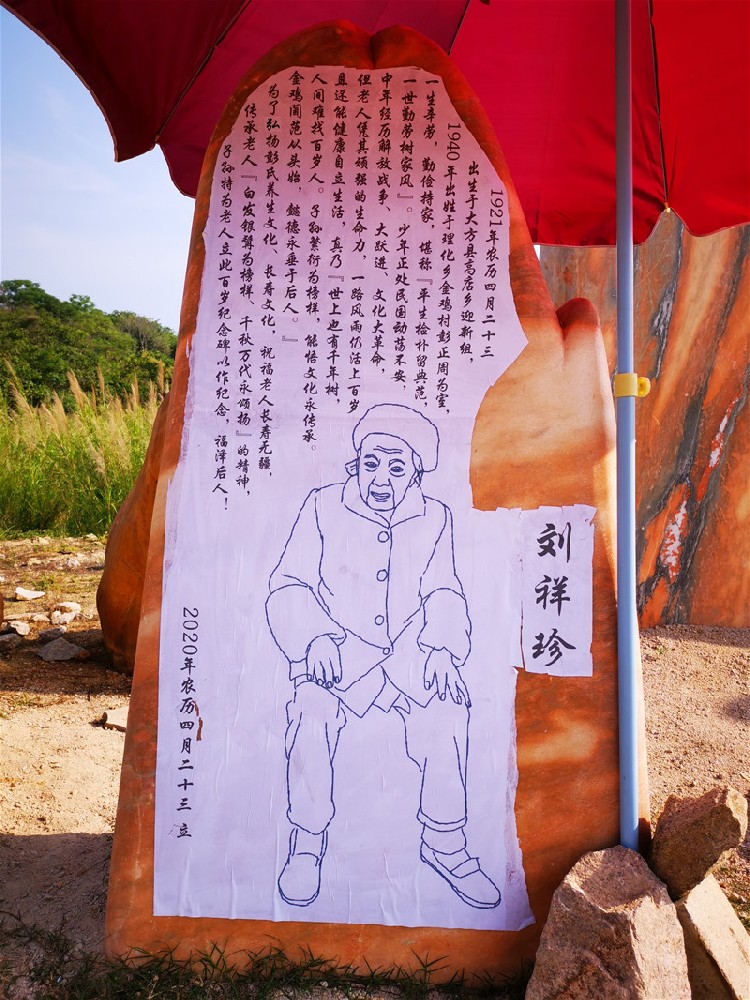 刘祥珍
1921年农历四月二十三
出生于大方县高店乡迎新组，
1940年出姓于理化乡金鸡村彭正周为室，
一生辛劳，勤俭持家，堪称『平生捡朴留典范，
一世勤劳树家风』。少年正处民国动荡不安，
中年经历解放战争、大跃进、文化大革命，
但老人凭其顽强的生命力，一路风雨仍活上百岁
且还能健康自立生活，真乃『世上也有千年树，
人间难找百岁人。子孙繁衍为榜样，能悟文化永传承。
金鸡阃范从头始，懿德永垂于后人。』
为了弘扬彭氏养生文化、长寿文化，祝福老人长寿无疆，
传承老人『白发银鬓为榜样，千秋万代永颂扬』的精神，
子孙特为老人立此百岁纪念碑以作纪念，福泽后人！
2020年农历四月二十三 立